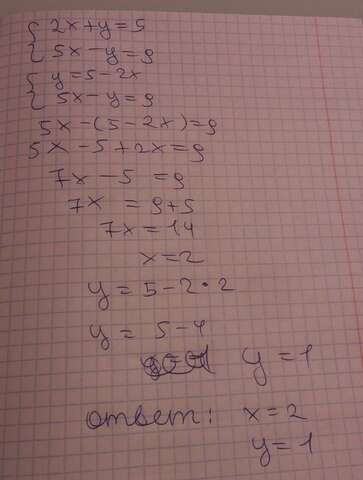 { 2x+y=5
{ 5x-y=9
{ y=5-2x
{ 5x-y=9
5x-(5-2x)=9
5x-5+2x=9
7x-5=9
7x=9+5
7x=14
x=2
y=5-2·2
y=5-4
y=1
ответ: x=2
y=1